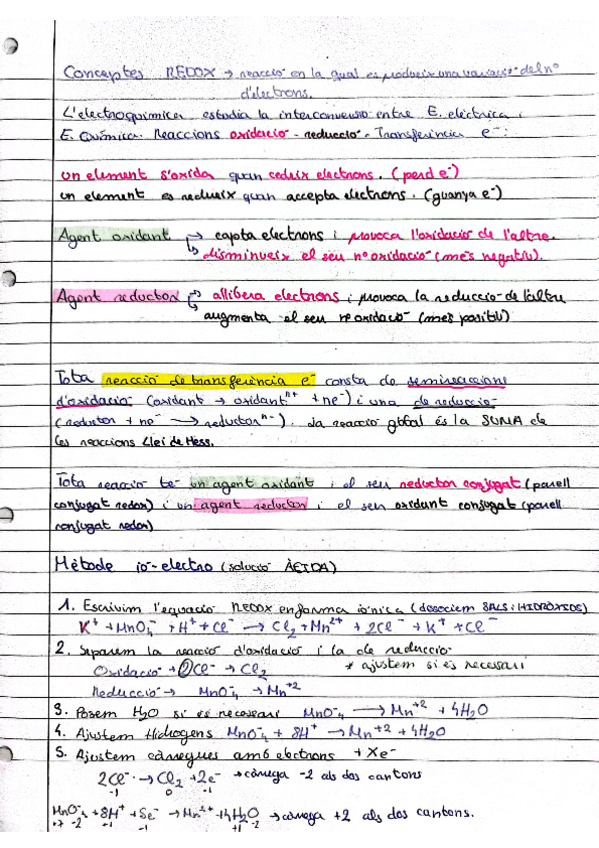 Conceptes REDOX → reacció en la qual es produeix una variació del nº
d'electrons.
L'electroquímica estudia la interconversió entre E. elèctrica i
E. Química. Reaccions oxidació - reducció. Transferència e⁻:
un element s'oxida quan cedeix electrons. (perd e⁻)
un element es redueix quan accepta electrons. (guanya e⁻)
Agent oxidant → capta electrons i provoca l'oxidació de l'altre.
↳ disminueix el seu nº oxidació (més negatiu).
Agent reductor → allibera electrons i provoca la reducció de l'altre
augmenta el seu nº oxidació (més positiu)
Tota reacció de transferència e⁻ consta de semireaccions
d'oxidació (oxidant → oxidantⁿ⁺ + ne⁻) i una de reducció
(reductor + ne⁻ → reductorⁿ⁻). La reacció global és la SUMA de
les reaccions Llei de Hess.
Tota reacció té un agent oxidant i el seu reductor conjugat (parell
conjugat redox) i un agent reductor i el seu oxidant conjugat (parell
conjugat redox)
Mètode ió-electró (solució ÀCIDA)
1. Escrivim l'equació REDOX en forma iònica (dissociem SALS i HIDRÒXIDS)
K⁺ + MnO₄⁻ + H⁺ + Cl⁻ → Cl₂ + Mn²⁺ + 2Cl⁻ + K⁺ + Cl⁻
2. Separem la reacció d'oxidació i la de reducció
Oxidació → 2Cl⁻ → Cl₂ * ajustem si és necessari
Reducció → MnO₄⁻ → Mn⁺²
3. Posem H₂O si és necessari MnO₄⁻ → Mn⁺² + 4H₂O
4. Ajustem Hidrogens MnO₄⁻ + 8H⁺ → Mn⁺² + 4H₂O
5. Ajustem càrregues amb electrons + Xe⁻
2Cl⁻ → Cl₂ + 2e⁻ → càrrega -2 als dos cantons
-1 0 -1
MnO₄⁻ + 8H⁺ + 5e⁻ → Mn²⁺ + 4H₂O → càrrega +2 als dos cantons.
+7 -2 -1 -1 +1 -2